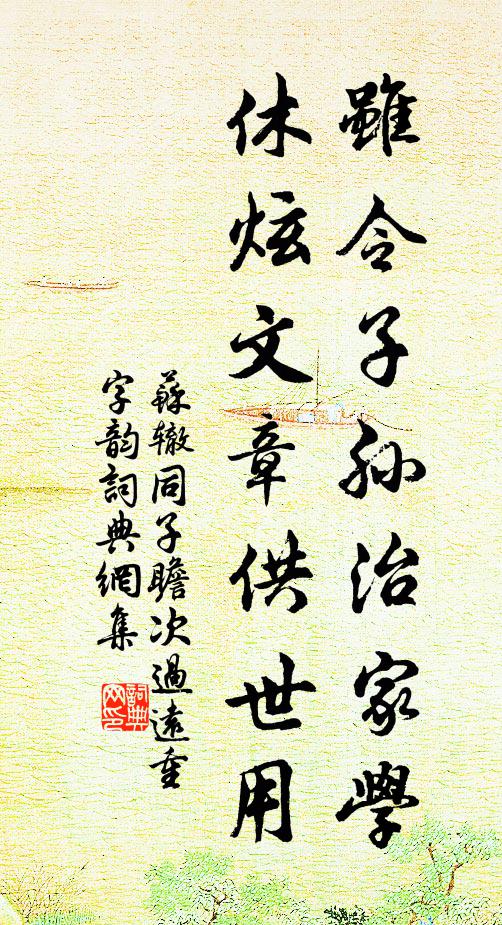 雖令子孫治家學
休炫文章供世用
蘇轍同子瞻次過遠重
字韵詞典網集
詞典
网印